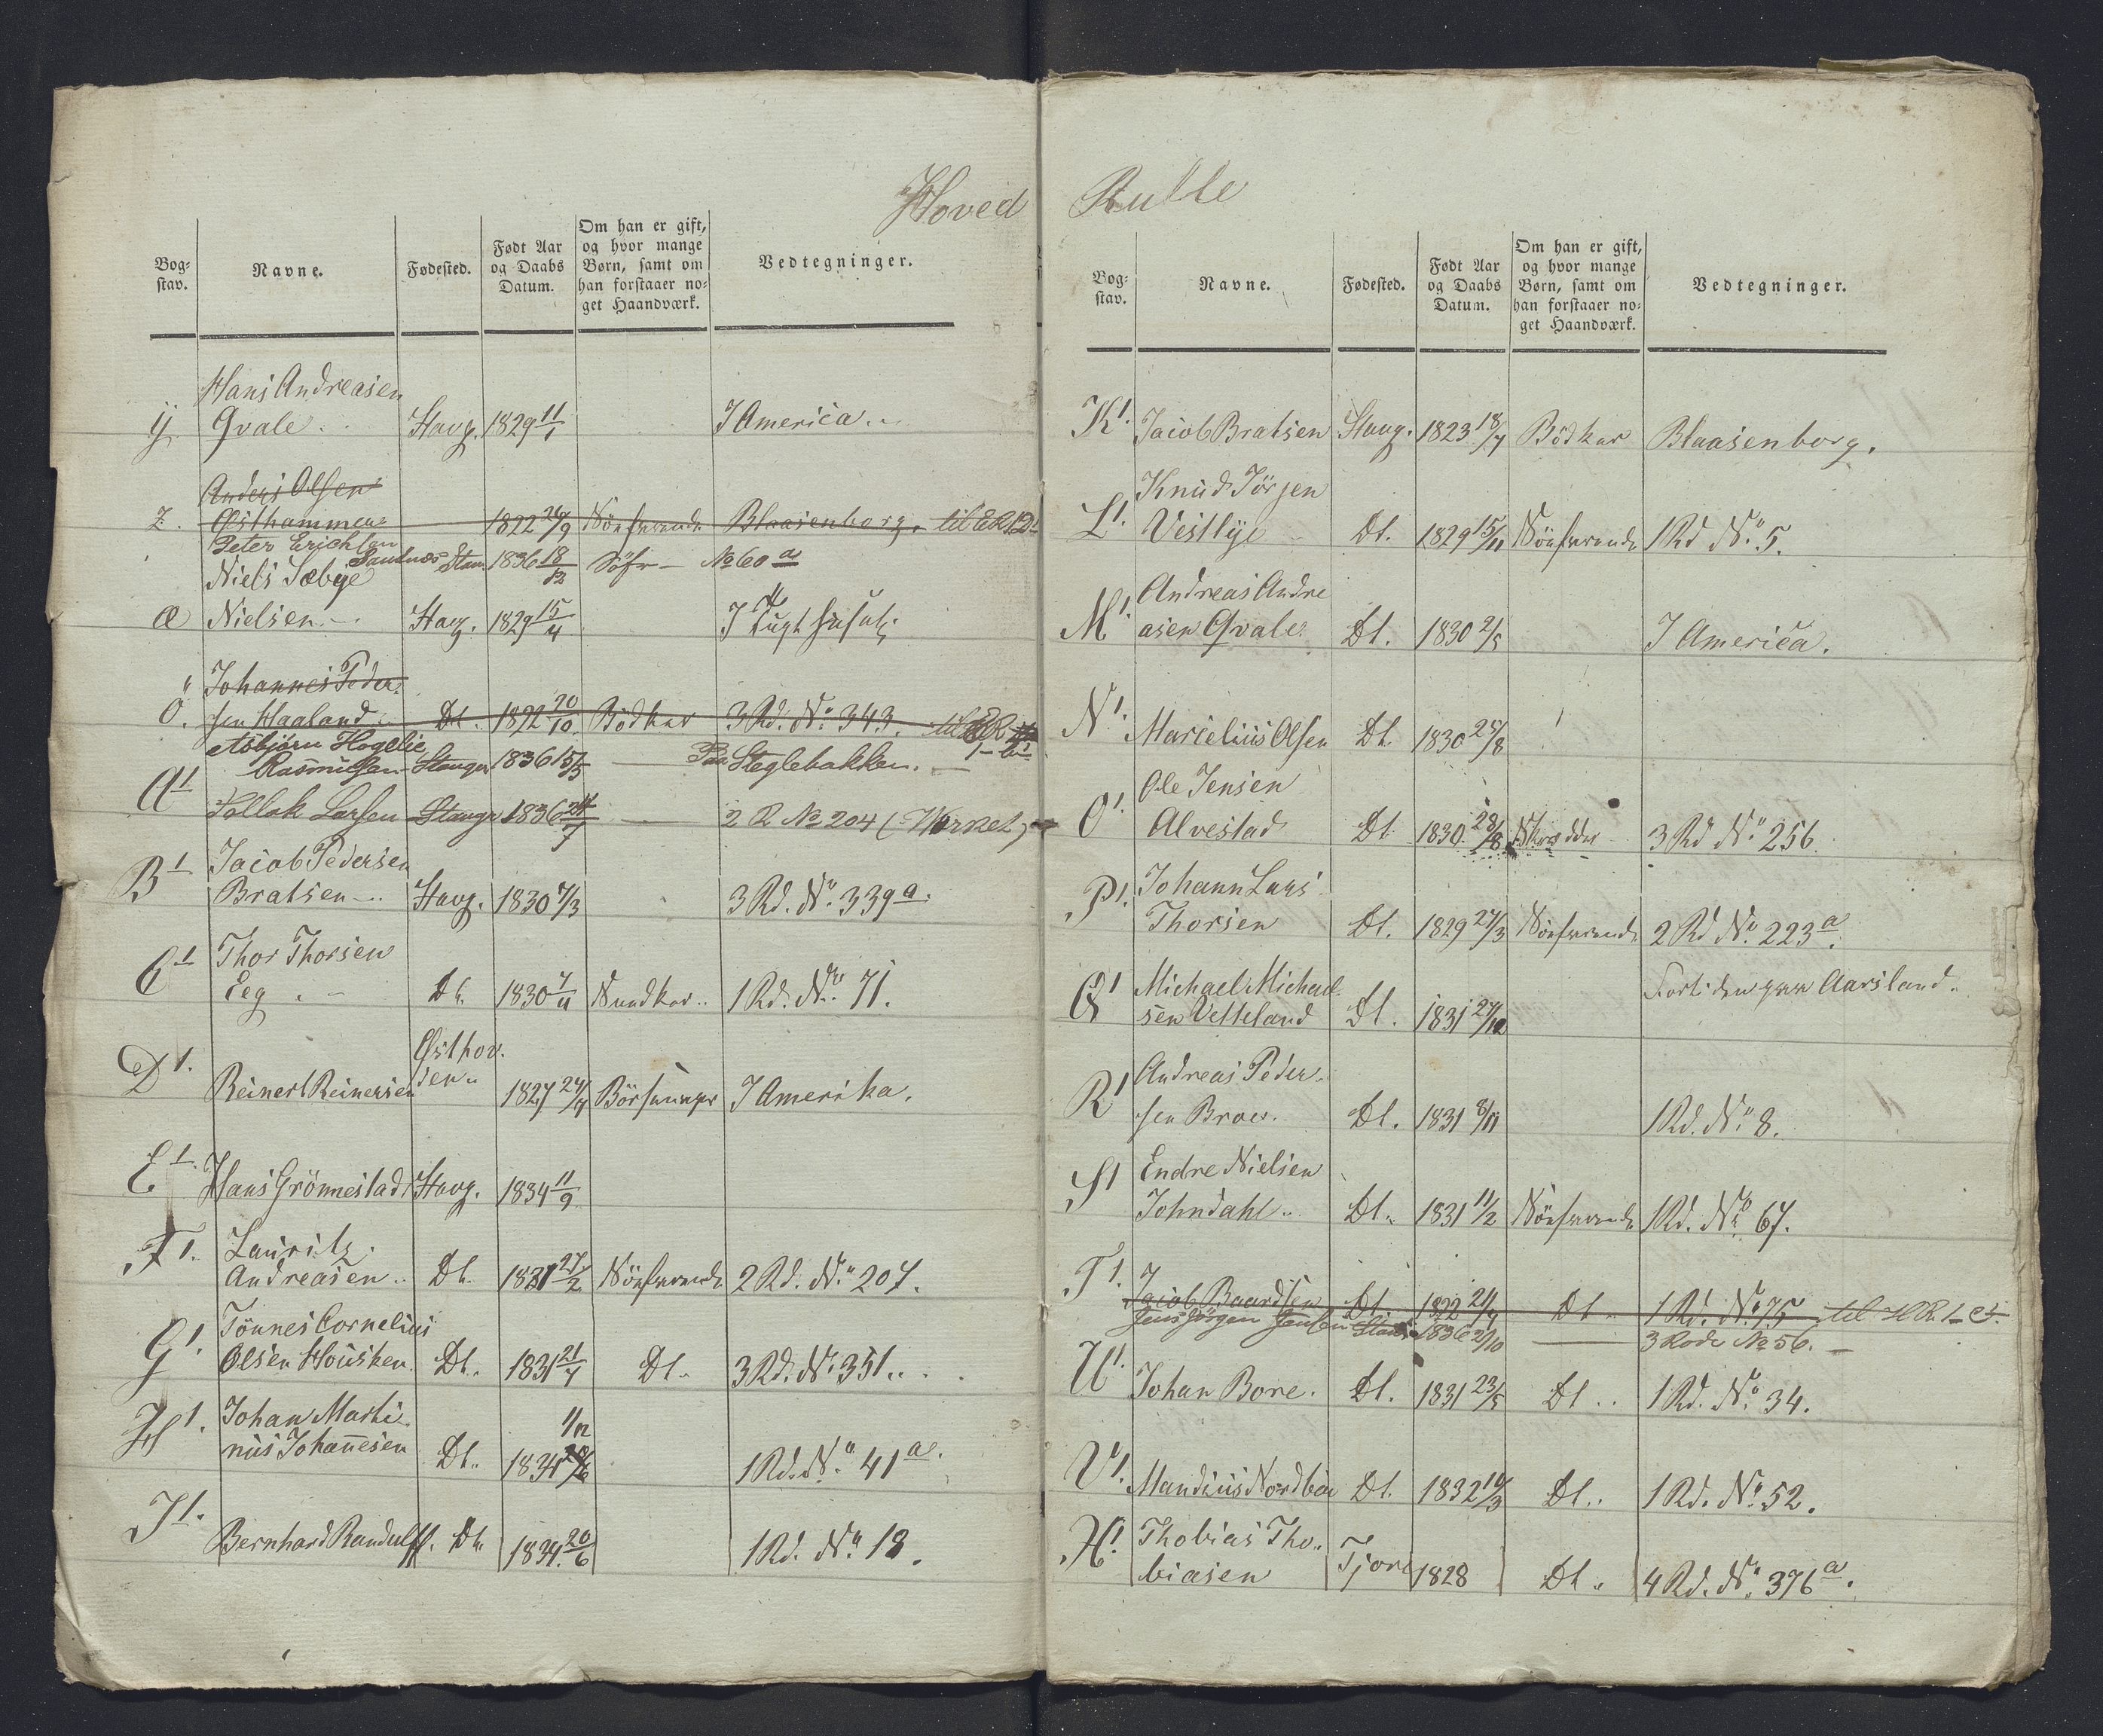 Hoved
Bog-
stav.
Navne.
Fødested.
Født Aar
og Daabs
Datum.
Om han er gift,
og hvor mange
Børn, samt om
han forstaaer no-
get Haandværk.
Vedtegninger.
Hans Andreasen
ÿ Qvale Havg. 1829 11/1 I America
Anders Olsen
Z. Østhammen 1822 26/9 Blaasenborg.
Peter Erichsen
Sandnæs Stav. 1836 18/12 Söfr No 60 a
Niels Sæbye
æ Nielsen Havg. 1829 15/4 I
Johannes Peder-
ö. sen Haaland Dt. 1822 20/10 Bödker 3 Rd. No 343.
Asbjörn Hogelie
Rasmussen Stavger 1836 15/5 Paa Steglebakken.
A1 Tollak Larsen Stavgr 1836 24/7 2 R No 204 (Virket)
Jacob Pedersen
B1 Bratsen Havg. 1830 7/3 3 Rd. No 339 a.
Thor Thorsen
C1 Eeg Dt. 1830 1 Rd. No 71.
Østhov.
D1. Reinert Reinersen 1827 I Amerika.
E1. Hans Grönnestad Havg. 1834 11/9
Lauritz
F1. Andreasen Dt. 1831 27/2 Söefarende 2 Rd. No 207.
Tönnes Cornelius
G1. Olsen Housken Dt. 1831 21/4 Dt. 3 Rd. No 351.
Johan Marti- 11/12
H1. nus Johannesen Dt. 1834 1 Rd. No 41 a.
I1. Bernhard Randulff. Dt. 1834 20/6 1 Rd. No 18.
Rulle
Bog-
stav.
Navne.
Fødested.
Født Aar
og Daabs
Datum.
Om han er gift,
og hvor mange
Børn, samt om
han forstaaer no-
get Haandværk.
Vedtegninger.
K1. Jacob Bratsen Havg. 1823 18/7 Bödker Blaasenborg.
Knud Jörgen
L1. Vestlye Dt. 1829 15/11 Söefarende 1 Rd No 5.
Andreas Andre
M1. asen Qvale. Dt. 1830 2/5 I America.
N1. Marcelius Olsen Dt. 1830 25/8
Ole Jensen
O1. Alvestad Dt 1830 28/8 Skrædder 3 Rd No 256
Johann Lars
P1. Thorsen Dt. 1829 27/3 Söefarende 2 Rd No 223 a.
Michael Michael- Aarsland.
Q1 sen Vetteland Dt. 1831 27/12
Andreas Peder-
R1 sen Broe. Dt. 1831 8/11 1 Rd. No 8.
Endre Nielsen
S1 Johndahl Dt. 1831 11/2 Söefarende 1 Rd. No 67.
T1. Jacob Baardsen Dt. 1822 Dt. 1 Rd. No 75
Jens Jörgen Jensen Stav. 1836 2/10 3 Rode No 56.
U1. Johan Bore. Dt. 1831 23/5 Dt. 1 Rd. No 34.
V1. Mandius Nordbøe Dt. 1832 Dt. 1 Rd. No 52.
Thobias Tho-
X1. biasen Tjora 1828 Dt. 4 Rd. No 376 a.